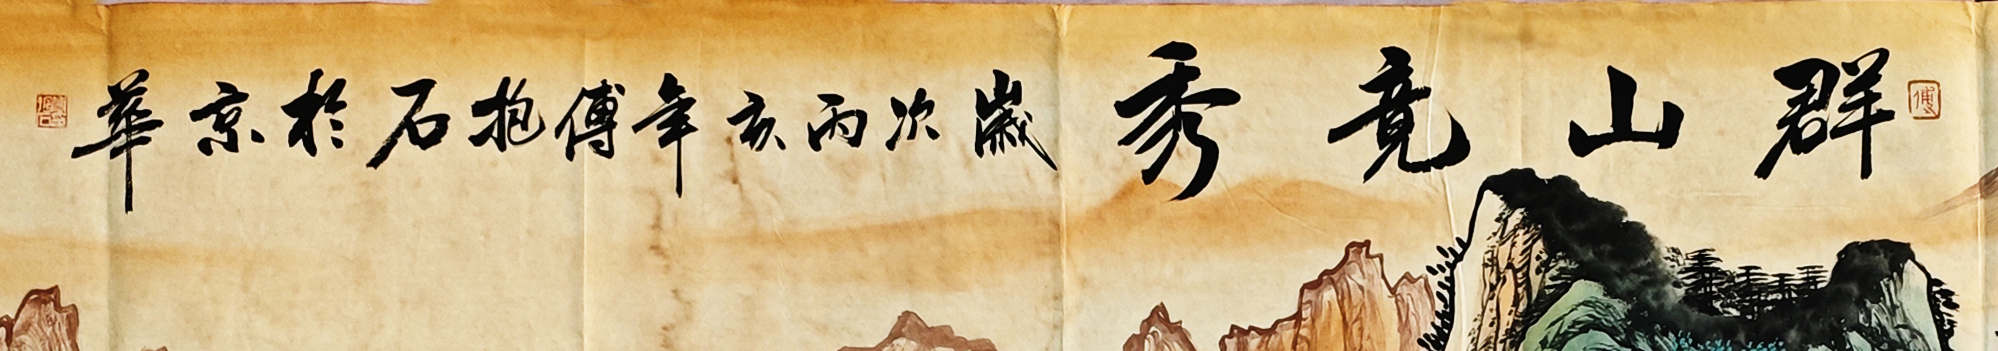 群山竟秀歲次丙亥年傅抱石於京華
傅